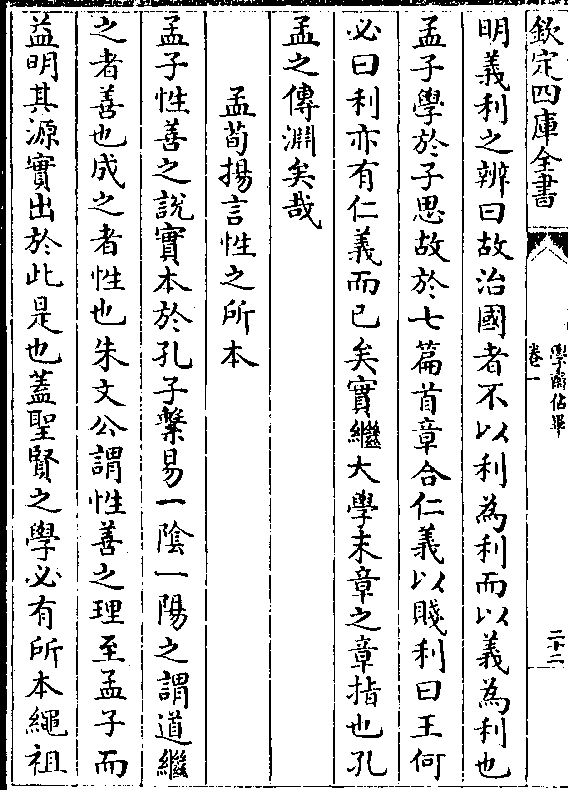 欽定四庫全書
學齋佔畢
卷一
二十二
明義利之辨曰故治國者不以利為利而以義為利也
孟子學於子思故於七篇首章合仁義以賤利曰王何
必曰利亦有仁義而已矣實繼大學末章之章指也孔
孟之傳淵矣哉
孟荀揚言性之所本
孟子性善之說實本於孔子繫易一陰一陽之謂道繼
之者善也成之者性也朱文公謂性善之理至孟子而
益明其源實出於此是也蓋聖賢之學必有所本繩祖